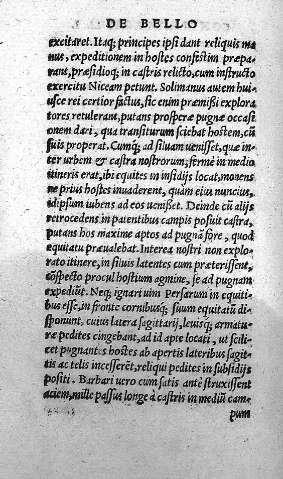 DE BELLO
excitaret. Itaq; principes ipsi dant reliquis ma-
nus, expeditionem in hostes confestim præpa-
rant, præsidioq; in castris relicto, cum instructo
exercitu Niceam petunt. Solimanus autem huiu-
sce rei certior factus, sic enim præmissi explora
tores retulerant, putans prosperæ pugnæ occasi
onem dari, qua transiturum sciebat hostem, cũ
suis properat. Cumq; ad siluam uenisset, quæ in-
ter urbem & castra nostrorum, fermè in medio
itineris erat, ibi equites in insidijs locat, monens
ne prius hostes inuaderent, quàm eius nuncius,
idipsum iubens ad eos uenisset. Deinde cũ alijs
retrocedens in patentibus campis posuit castra,
putans hos maximè aptos ad pugnã fore, quod
equitatu præualebat. Interea nostri non explo-
rato itinere, in siluis latentes cum præterissent,
cõspecto procul hostium agmine, se ad pugnam
expediũt. Neq; ignari uim Persarum in equiti-
bus esse, in fronte cornibusq; suum equitatũ di-
sponunt, cuius latera sagittarij, leuisq; armatu-
ræ pedites cingebant, ad id aptè locati, ut scili-
cet pugnantes hostes ab apertis lateribus sagit-
tis ac telis incesserẽt, reliqui pedites in subsidijs
positi. Barbari uero cum satis antè struxissent
aciem, mille passus longè à castris in mediũ cam-
pum